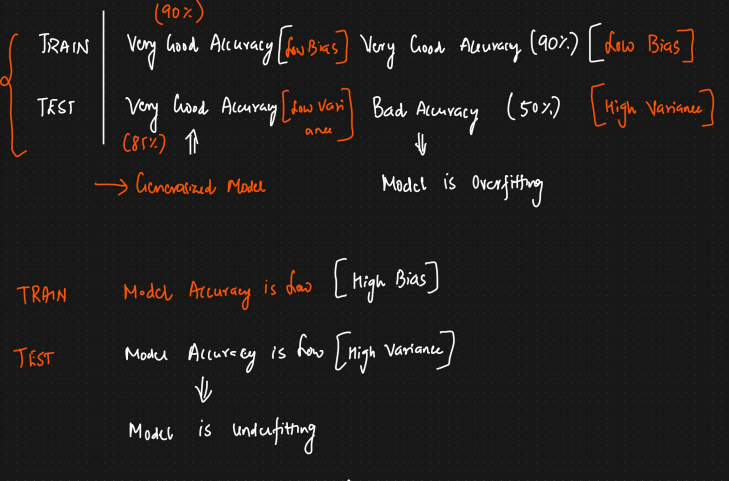 (90%)
TRAIN Very Good Accuracy [Low Bias] Very Good Accuracy (90%) [Low Bias]
TEST Very Good Accuracy [Low Vari Bad Accuracy (50%) [High Variance]
ance]
(85%)
→ Generalized Model Model is Overfitting
TRAIN Model Accuracy is Low [High Bias]
TEST Model Accuracy is Low [High Variance]
Model is Underfitting